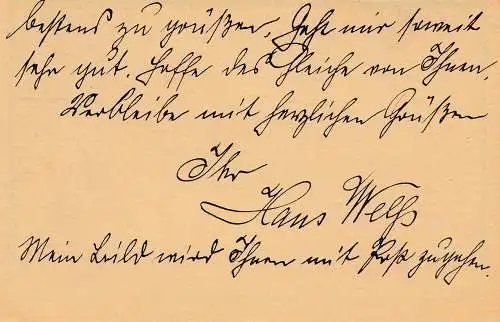 bestens zu grüßen. Geht mir soweit
sehr gut. Hoffe des Gleiche von Ihnen.
Verbleibe mit herzlichen Grüßen
Ihr
Hans Welß
Mein Bild wird Ihnen mit Post zugehen.